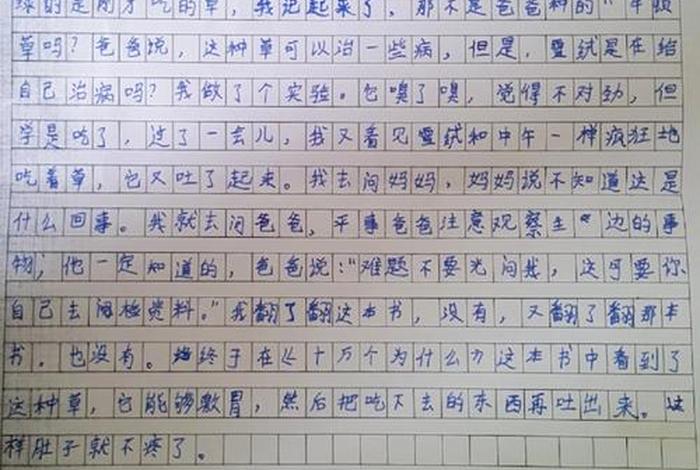 绿的是刚才吃的草，我记起来了，那不是爸爸种的“牛顿
草吗？爸爸说，这种草可以治一些病，但是，雪绒是在给
自己治病吗？我做了个实验。它嗅了嗅，觉得不对劲，但
学是吃了，过了一会儿，我又看见雪绒和中午一样疯狂地
吃着草，它又吐了起来。我去问妈妈，妈妈说不知道这是
什么回事。我就去问爸爸，平事爸爸注意观察生边的事
物，他一定知道的，爸爸说：“难题不要光问我，这可要你
自己去阅检资料。”我翻了翻这本书，没有，又翻了翻那本
书，也没有。终于在《十万个为什么》这本书中看到了
这种草，它能够激胃，然后把吃下去的东西再吐出来。这
样肚子就不疼了。